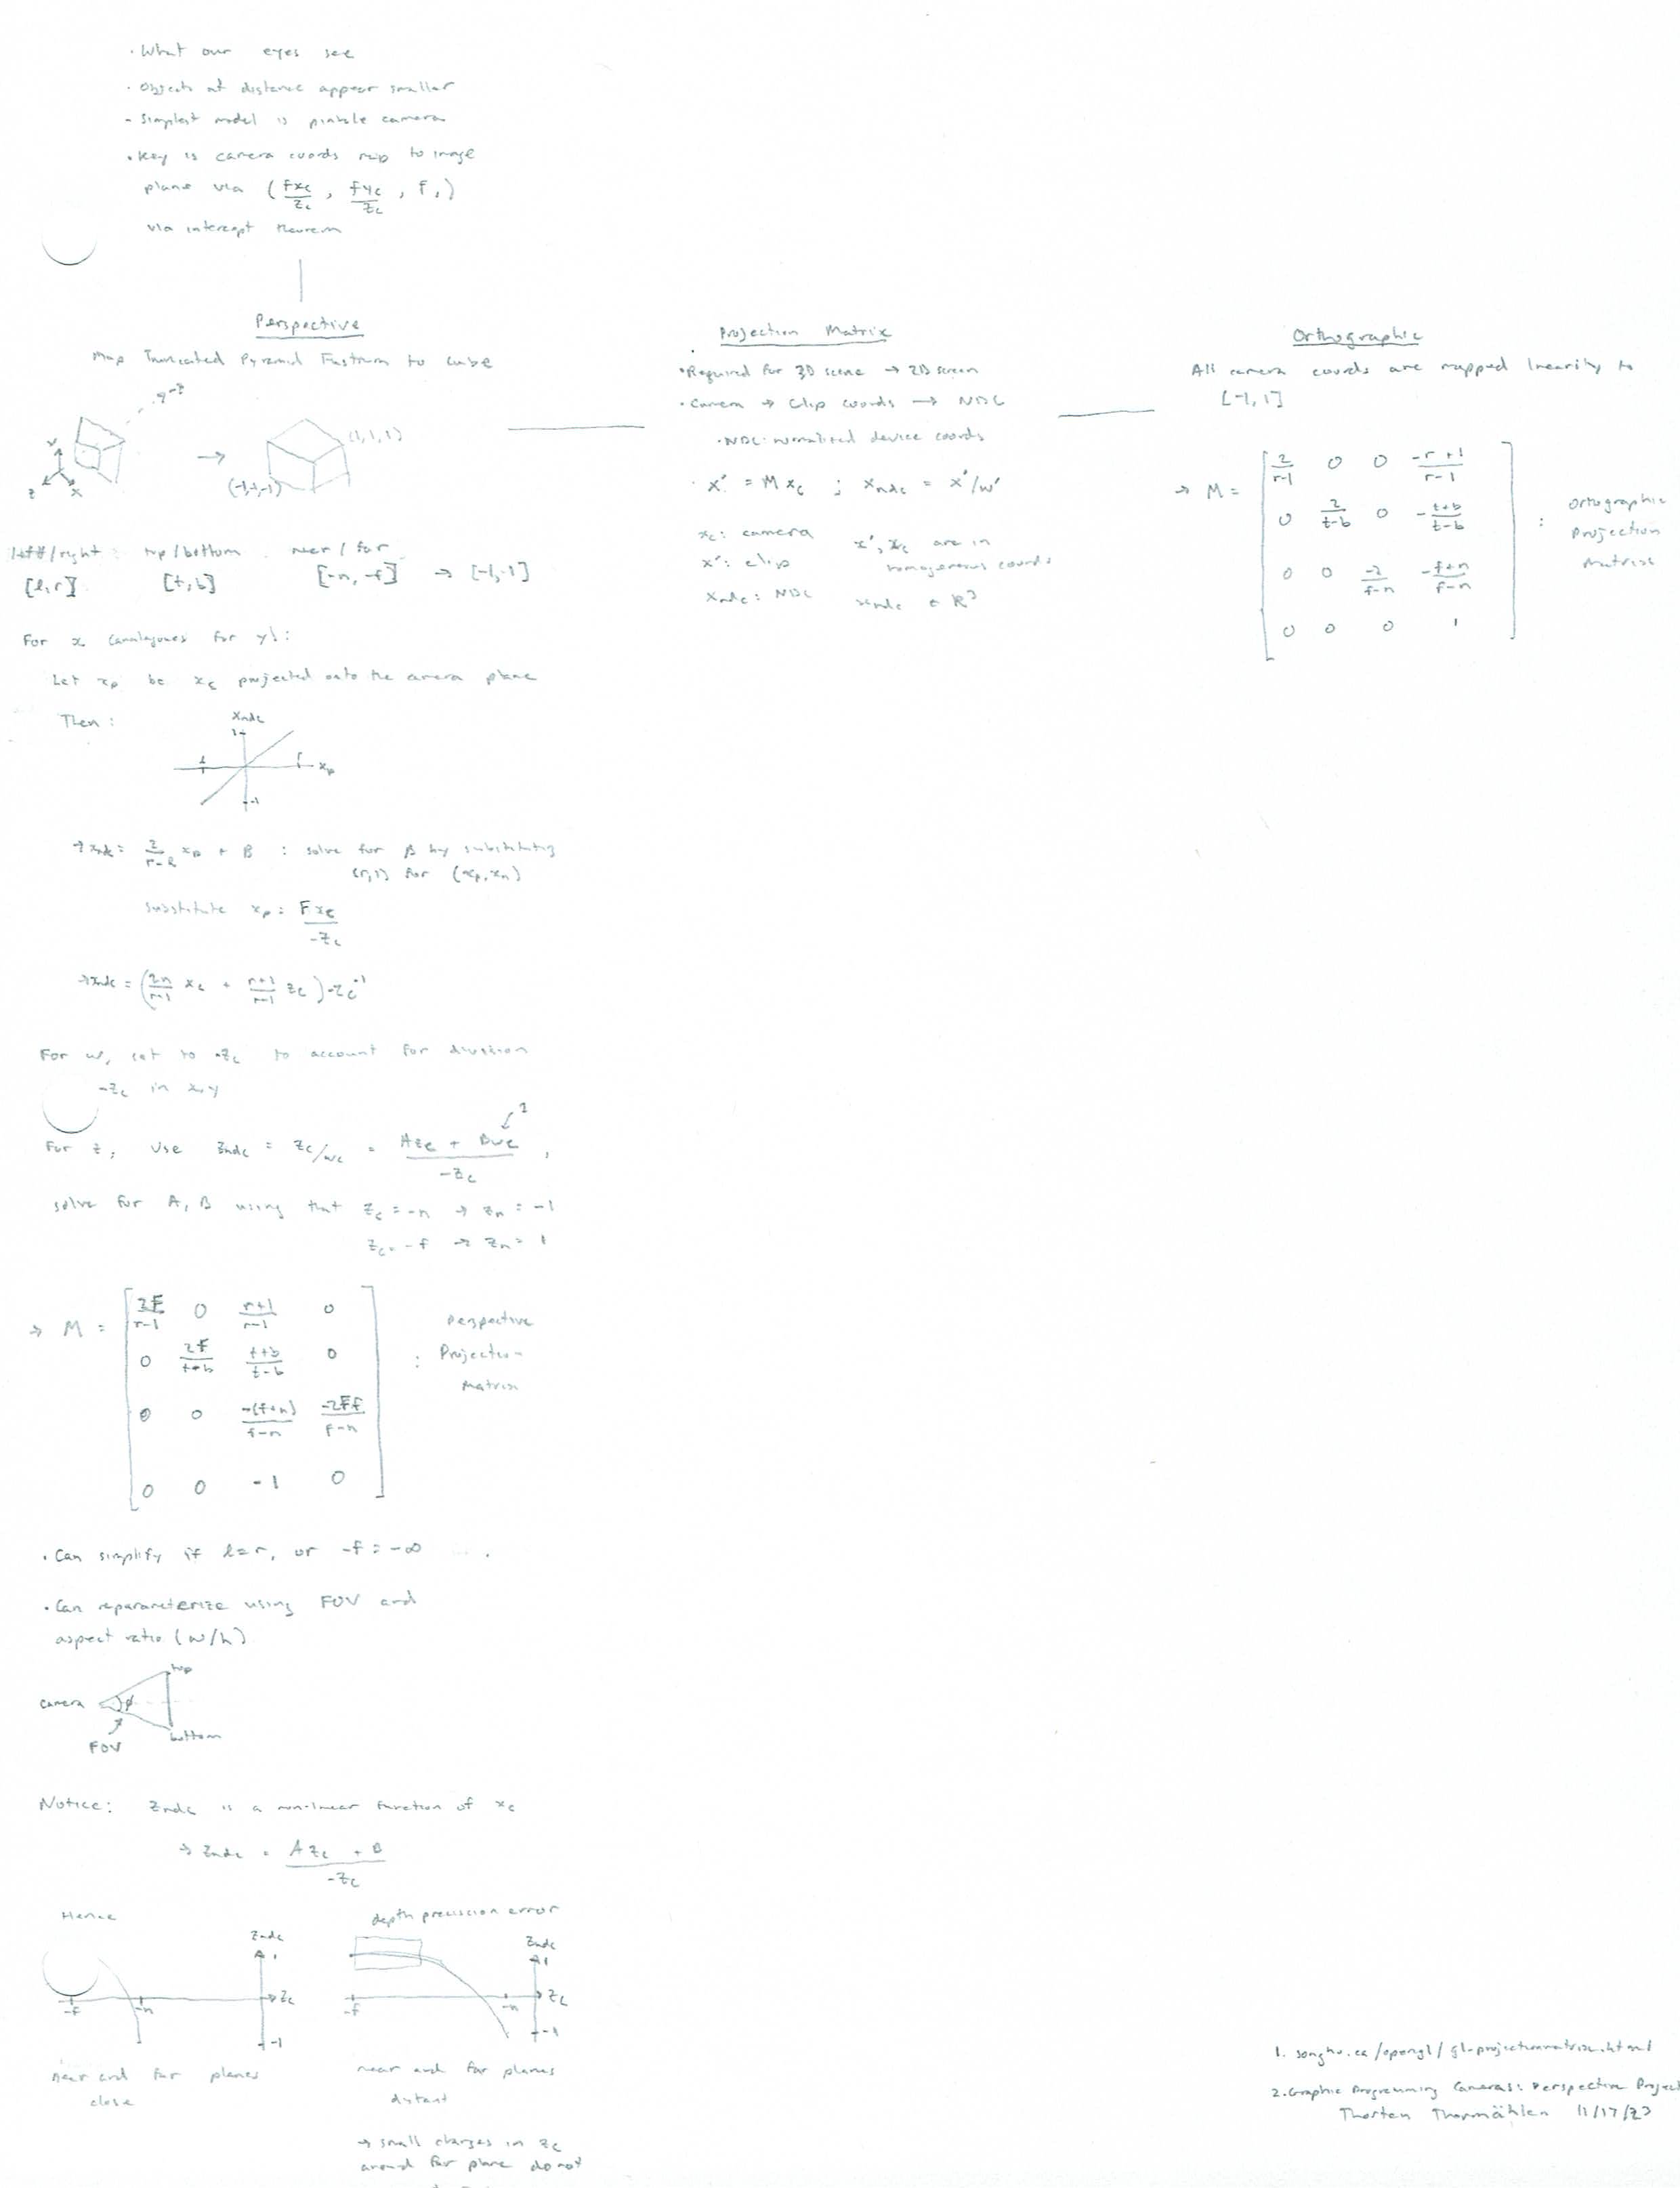 · What our eyes see
· Objects at distance appear smaller
- Simplest model is pinhole camera
· Key is camera coords map to image
plane via (fxc/zc, fyc/zc, f,)
via intercept theorem
Perspective
Map Truncated Pyramid Fustrum to cube
(1,1,1)
(-1,-1,-1)
y
z
x
left/right : top/bottom . near / far
[l,r] [t,b] [-n, -f] → [-1,-1]
For x (analagoues for y):
Let xp be xc projected onto the camera plane
Then :
xndc
1
l
r
xp
-1
→ xndc = 2/(r-l) xp + β : solve for β by substituting
(r,1) for (xp, xn)
substitute xp = Fxc/-zc
→ xndc = (2n/(r-l) xc + (r+l)/(r-l) zc) -zc^-1
For w, set to -zc to account for division
-zc in x,y
For z, use zndc = zc/wc = (Azc + Bwc)/-zc ,
solve for A, B using that zc = -n → zn = -1
zc = -f → zn = 1
→ M =
2F/(r-l) 0 (r+l)/(r-l) 0
0 2F/(t+b) (t+b)/(t-b) 0
0 0 -(f+n)/(f-n) -2Ff/(f-n)
0 0 -1 0
: Perspective
Projection
Matrix
· Can simplify if l=r, or -f = -∞ ....
· Can reparameterize using FOV and
aspect ratio (w/h)
top
camera
φ
FOV
bottom
Notice: zndc is a non-linear function of xc
→ zndc = (Azc + B)/-zc
Hence
zndc
1
zc
-f
-n
-1
near and far planes
close
depth preciscion error
zndc
1
zc
-f
-n
-1
near and far planes
distant
→ small changes in zc
around far plane do not
Projection Matrix
· Required for 3D scene → 2D screen
· Camera → Clip coords → NDC
· NDC: normalized device coords
· x' = M xc ; xndc = x'/w'
xc: camera
x': clip
xndc: NDC
x', xc are in
homogenous coords
xndc ∈ R³
Orthographic
All camera coords are mapped linearily to
[-1,1]
→ M =
2/(r-l) 0 0 -r+l/(r-l)
0 2/(t-b) 0 -t+b/(t-b)
0 0 -2/(f-n) -f+n/(f-n)
0 0 0 1
: Orthographic
Projection
Matrix
1. songho.ca/opengl/gl-projectionmatrix.html
2. Graphic Programming Cameras: Perspective Project
Thorsten Thormählen 11/17/23